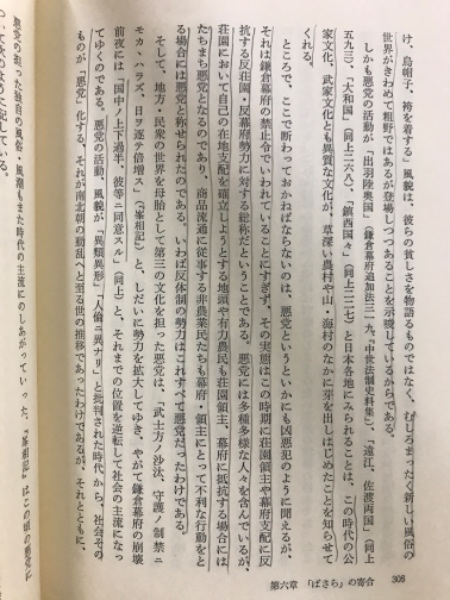 308
第六章 「ばさら」の寄合
け、烏帽子、袴を着する」風貌は、彼らの貧しさを物語るものではなく、むしろまったく新しい風俗の
世界がきわめて粗野ではあるが登場しつつあることを示唆しているからである。
しかも悪党の活動が「出羽陸奥国」（鎌倉幕府追加法三一九、『中世法制史料集』）、「遠江、佐渡両国」（同上
五九三）、「大和国」（同上二六八）、「鎮西国々」（同上一二七）と日本各地にみられることは、この時代の公
家文化、武家文化とも異質な文化が、草深い農村や山・海村のなかに芽を出しはじめたことを知らせて
くれる。
ところで、ここで断わっておかねばならないのは、悪党というといかにも凶悪犯のように聞えるが、
それは鎌倉幕府の禁止令でいわれていることにすぎず、その実態はこの時期に荘園領主や幕府支配に反
抗する反荘園・反幕府勢力に対する総称だということである。悪党には多種多様な人々を含んでいるが、
荘園において自己の在地支配を確立しようとする地頭や有力農民も荘園領主、幕府に抵抗する場合には
たちまち悪党となるのであり、商品流通に従事する非農業民たちも幕府・領主にとって不利な行動をと
る場合には悪党と称せられたのである。いわば反体制の勢力はこれすべて悪党だったわけである。
そして、地方・民衆の世界を母胎として第三の文化を担った悪党は、「武士方ノ沙汰、守護ノ制禁ニ
モカヽハラズ、日ヲ逐テ倍増ス」（『峯相記』）と、しだいに勢力を拡大してゆき、やがて鎌倉幕府の崩壊
前夜には「国中ノ上下過半、彼等ニ同意スル」（同上）と、それまでの位置を逆転して社会の主流になっ
てゆくのである。悪党の活動、風貌が「異類異形」「人倫ニ異ナリ」と批判された時代から、社会その
ものが「悪党」化する、それが南北朝の動乱へと至る世の推移であったわけであるが、それとともに、
悪党の担った独自の風俗・風潮もまた時代の主流にのしあがっていった。『峯相記』はこの頃の悪党に
ついて次のように記している。